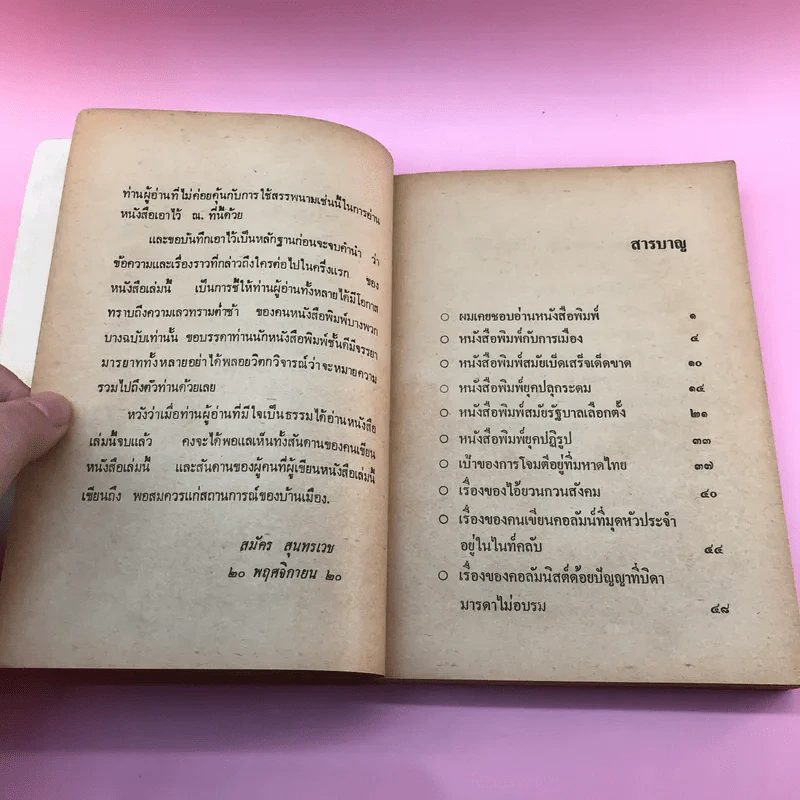 ท่านผู้อ่านที่ไม่ค่อยคุ้นกับการใช้สรรพนามเช่นนี้ในการอ่าน
หนังสือเอาไว้ ณ. ที่นี้ด้วย
และขอบันทึกเอาไว้เป็นหลักฐานก่อนจะจบคำนำ ว่า
ข้อความและเรื่องราวที่กล่าวถึงใครต่อไปในครึ่งแรก ของ
หนังสือเล่มนี้ เป็นการชี้ให้ท่านผู้อ่านทั้งหลายได้มีโอกาส
ทราบถึงความเลวทรามต่ำช้า ของคนหนังสือพิมพ์บางพวก
บางฉบับเท่านั้น ขอบรรดาท่านนักหนังสือพิมพ์ชั้นดีมีจรรยา
มารยาททั้งหลายอย่าได้พลอยวิตกวิจารณ์ว่าจะหมายความ
รวมไปถึงตัวท่านด้วยเลย
หวังว่าเมื่อท่านผู้อ่านที่มีใจเป็นธรรมได้อ่านหนังสือ
เล่มนี้จบแล้ว คงจะได้พอแลเห็นทั้งสันดานของคนเขียน
หนังสือเล่มนี้ และสันดานของผู้คนที่ผู้เขียนหนังสือเล่มนี้
เขียนถึง พอสมควรแก่สถานการณ์ของบ้านเมือง.
สมัคร สุนทรเวช
๒๐ พฤศจิกายน ๒๐
สารบาญ
○ ผมเคยชอบอ่านหนังสือพิมพ์ ๑
○ หนังสือพิมพ์กับการเมือง ๔
○ หนังสือพิมพ์สมัยเบ็ดเสร็จเด็ดขาด ๑๐
○ หนังสือพิมพ์ยุคปลุกระดม ๑๔
○ หนังสือพิมพ์สมัยรัฐบาลเลือกตั้ง ๒๑
○ หนังสือพิมพ์ยุคปฏิรูป ๓๓
○ เป้าของการโจมตีอยู่ที่มหาดไทย ๓๗
○ เรื่องของไอ้ยวนกวนสังคม ๔๐
○ เรื่องของคนเขียนคอลัมน์ที่มุดหัวประจำ
อยู่ในไนท์คลับ ๔๔
○ เรื่องของคอลัมนิสต์ด้อยปัญญาที่บิดา
มารดาไม่อบรม ๔๘